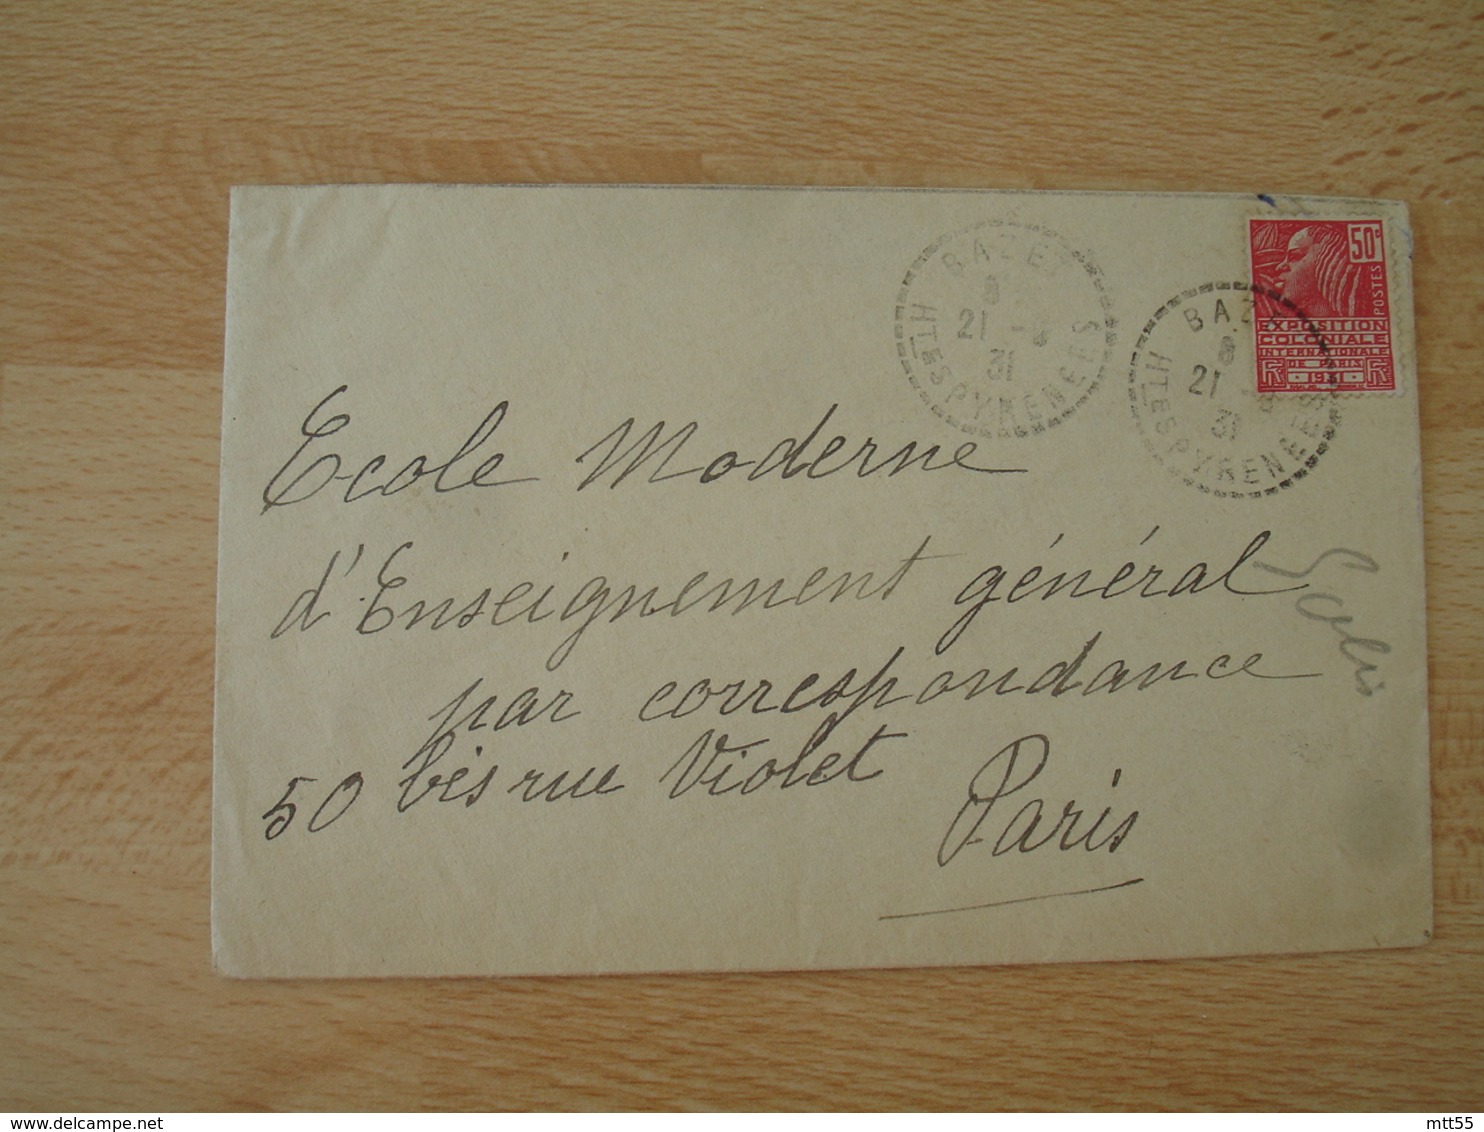 BAZET
8
21 - 8
31
HTES PYRENEES
BAZE
8
21 - 8
31
HTES PYRENEES
50c
POSTES
EXPOSITION
COLONIALE
INTERNATIONALE
DE PARIS
RF 1931 RF
Ecole Moderne
d'Enseignement général
par correspondance
50 bis rue Violet
Paris
mtt55